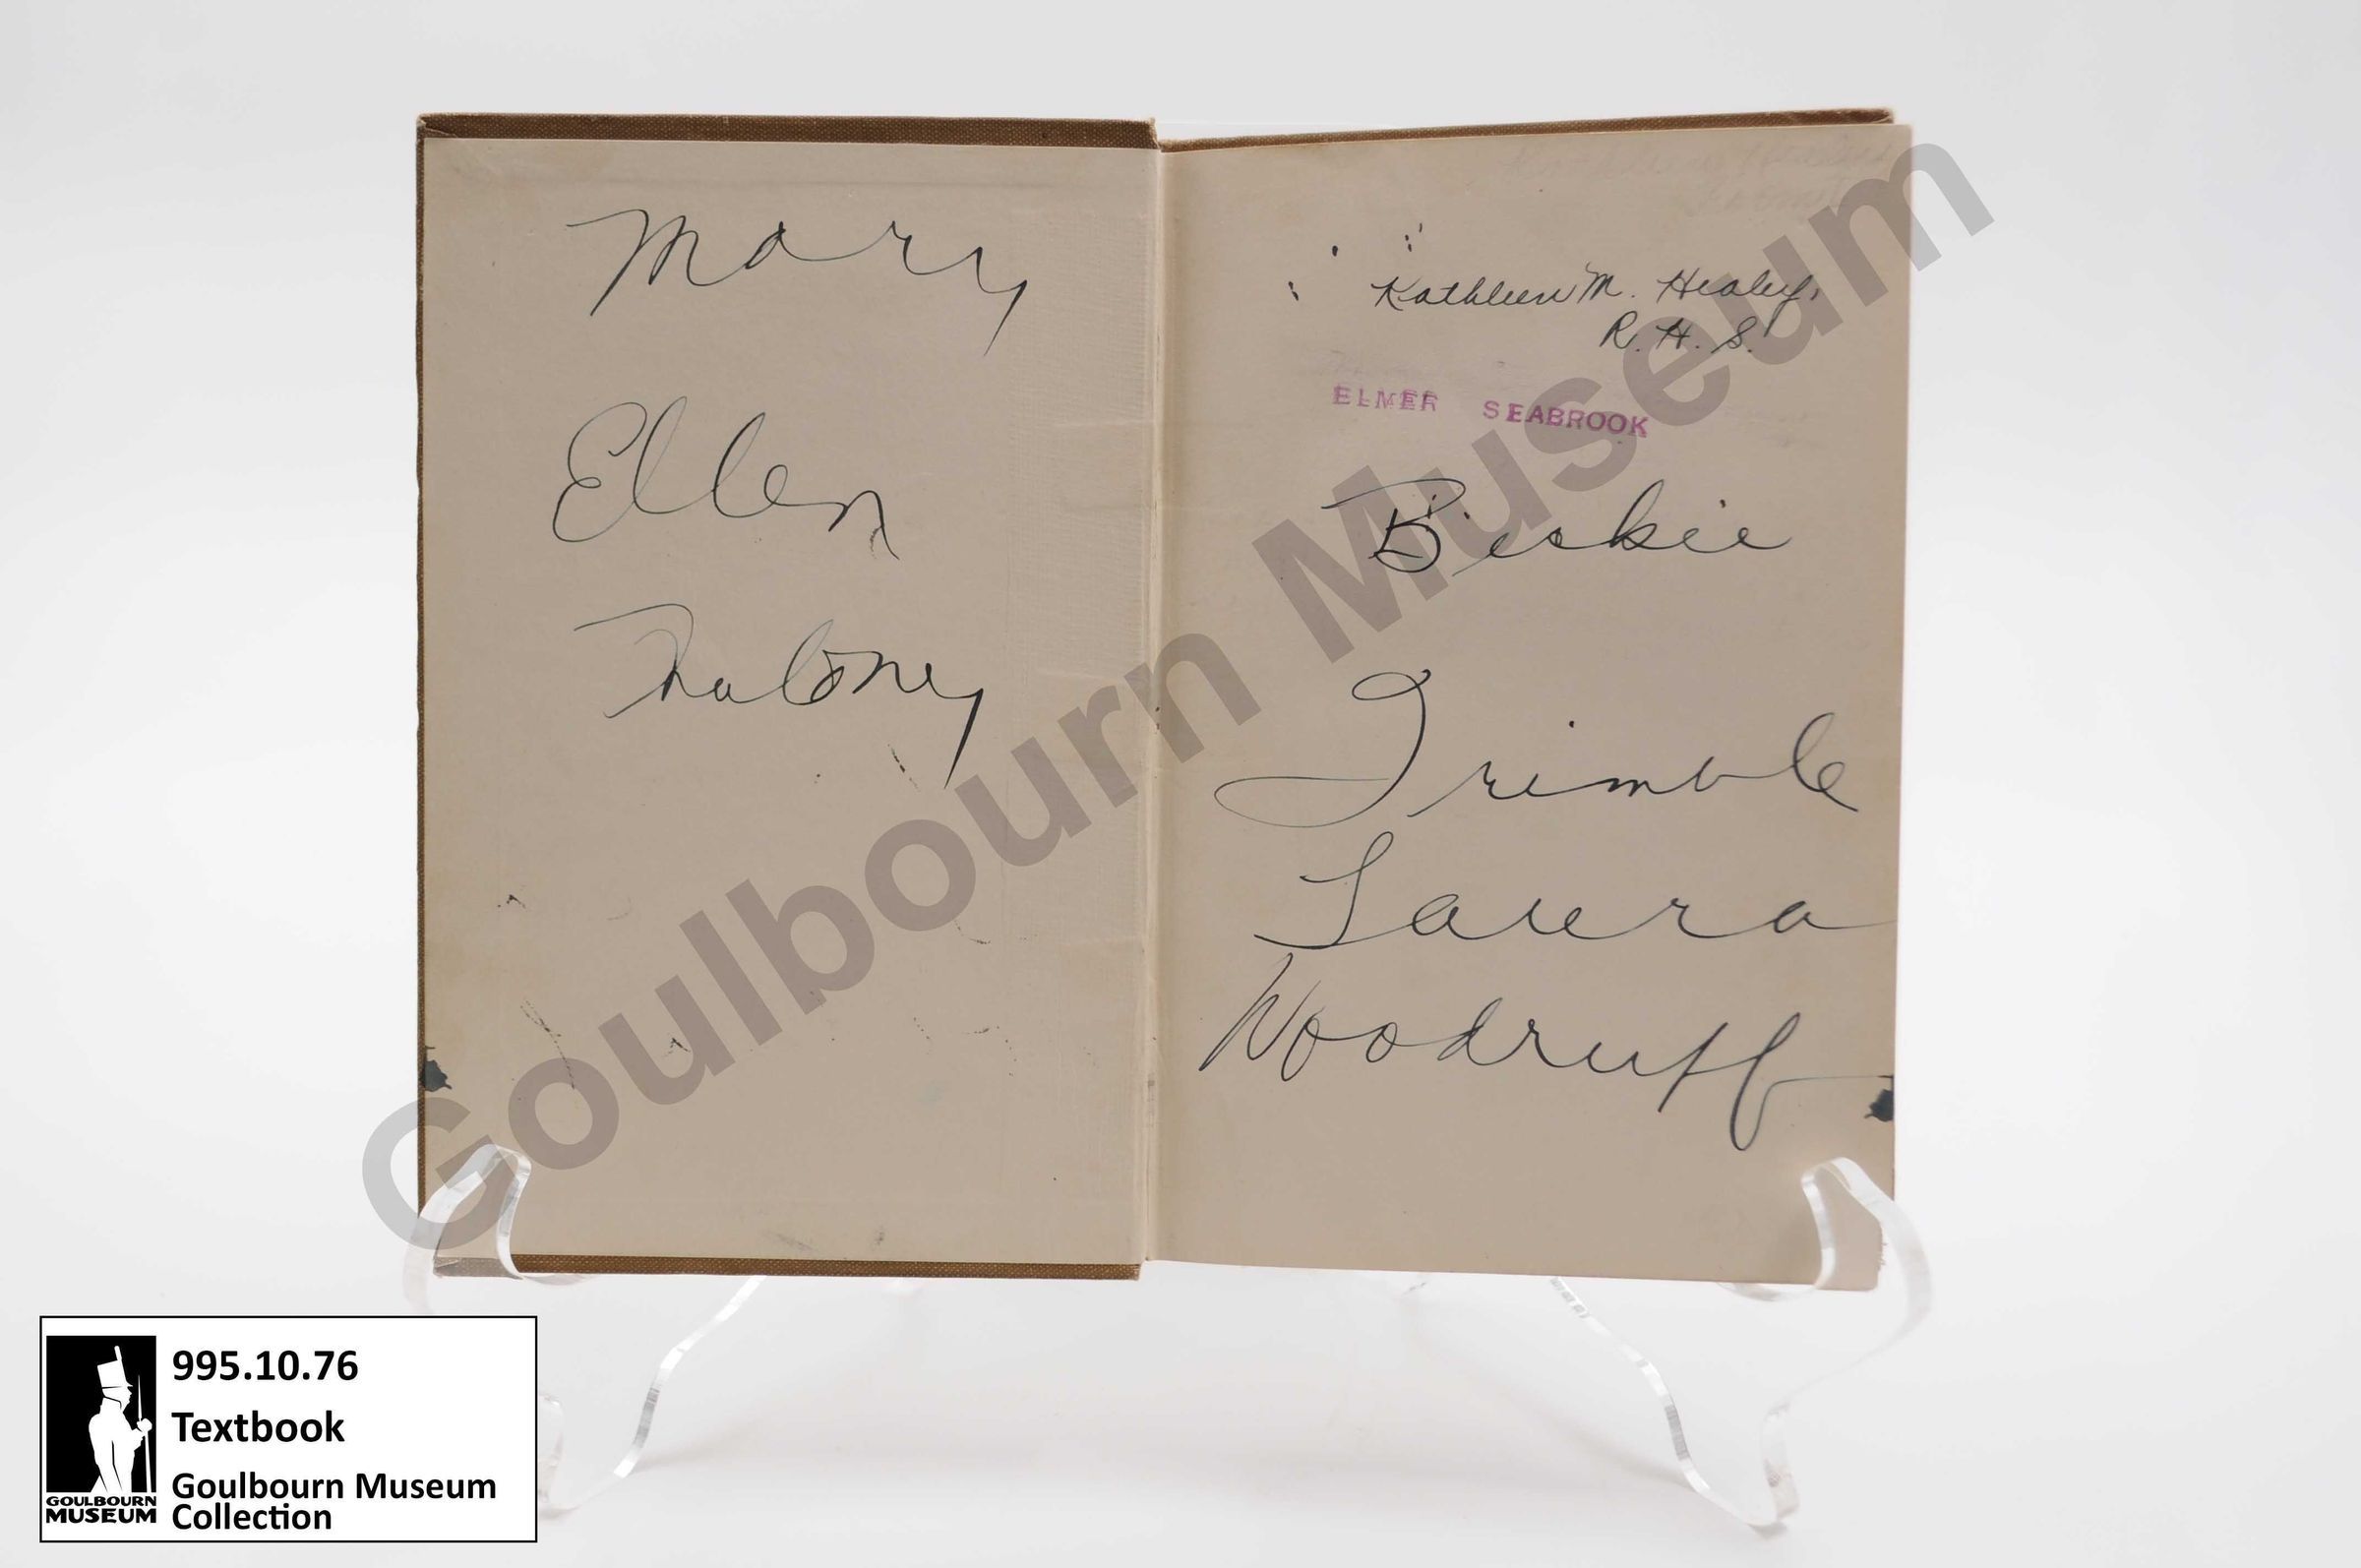 Mary
Ellen
Maloney
Kathleen M. Healey,
R. H. S.
ELMER SEABROOK
Trimble
Laura
Woodruff
Goulbourn Museum
995.10.76
Textbook
Goulbourn Museum
Collection
GOULBOURN
MUSEUM